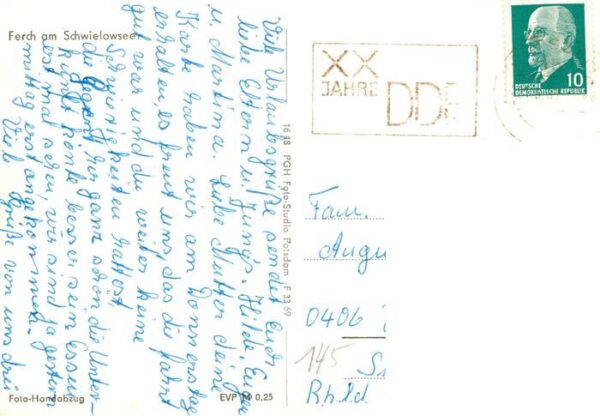 Ferch am Schwielowsee
Viele Urlaubsgrüße sendet Euch
liebe Eltern u. Jung's. Hilde, Eugen
u. Martina. Liebe Mutter deine
Karte haben wir am Donnerstag
erhalten es freut uns das die Fahrt
gut war und du weiter keine
Schwierigkeiten hattest
die Gegend hir ganz schön die Unter-
kunft könte besser sein Essen
erst mal sehen, wir sind ja gestern
mittag erst angekommen.
Viele Grüße von uns drei
Foto-Handabzug
EVP M 0,25
1618 PGH Foto-Studio Potsdam F 33 69
XX
JAHRE DDR
10
DEUTSCHE
DEMOKRATISCHE REPUBLIK
Fam.
Augu
0406
145
Rhld.